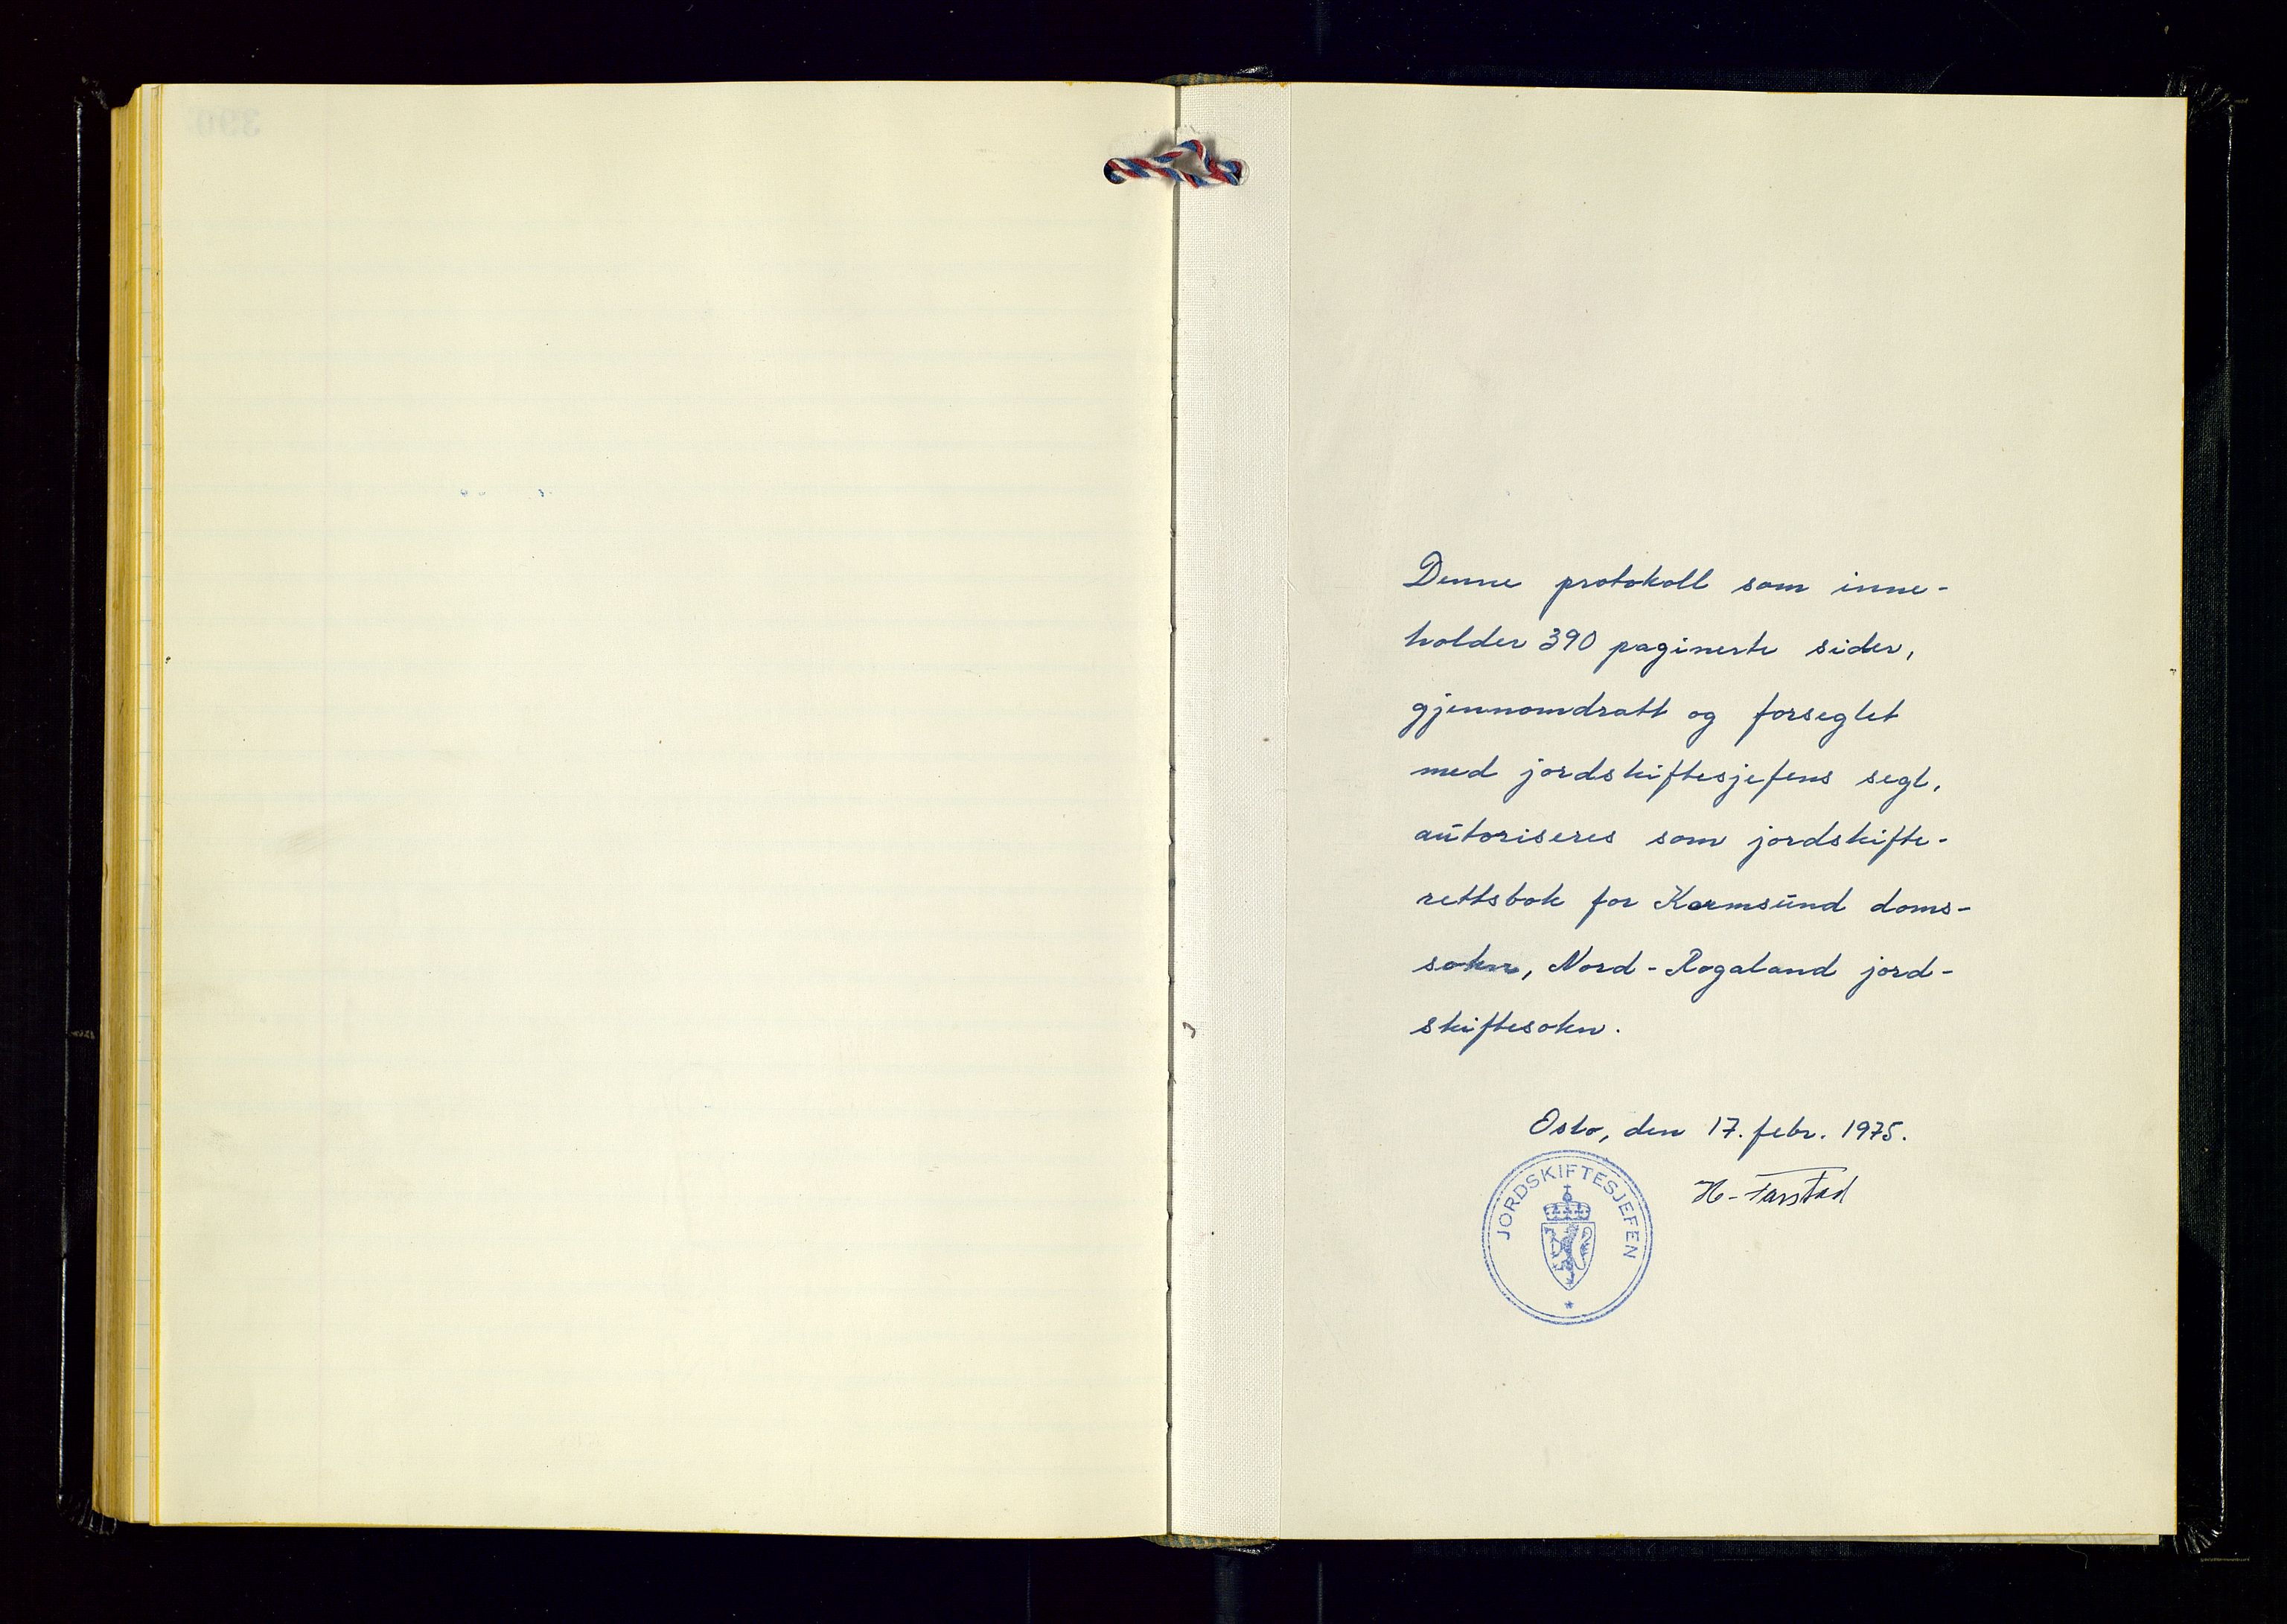 390
Denne protokoll som inne-
holder 390 paginerte sider,
gjennomdratt og forseglet
med jordskiftesjefens segl,
autoriseres som jordskifte-
rettsbok for Karmsund doms-
sokn, Nord-Rogaland jord-
skiftesokn.
Oslo, den 17. febr. 1975.
H. Farstad
JORDSKIFTESJEFEN